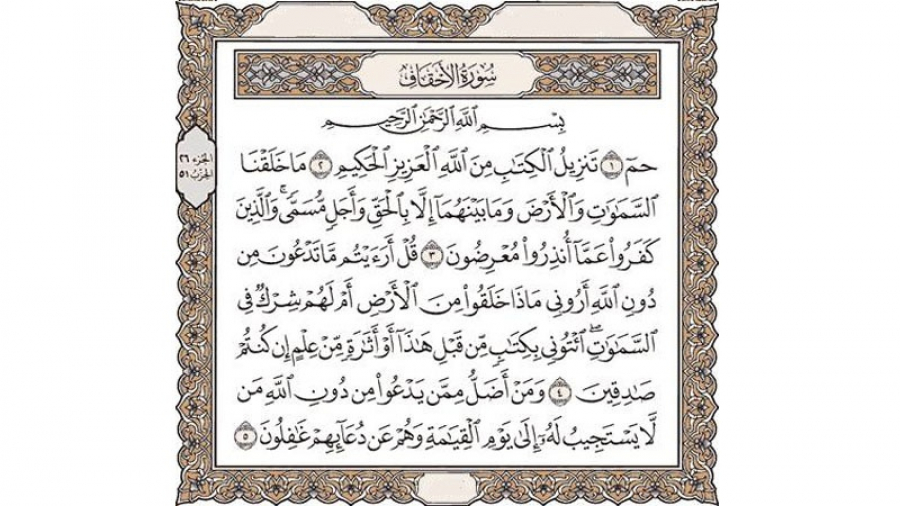 سُورَةُ الأَحْقَافِ
بِسْمِ اللَّهِ الرَّحْمَٰنِ الرَّحِيمِ
الجزء ٢٦
الحزب ٥١
حمٓ ١ تَنزِيلُ الْكِتَابِ مِنَ اللَّهِ الْعَزِيزِ الْحَكِيمِ ٢ مَا خَلَقْنَا
السَّمَاوَاتِ وَالْأَرْضَ وَمَا بَيْنَهُمَا إِلَّا بِالْحَقِّ وَأَجَلٍ مُّسَمًّى ۚ وَالَّذِينَ
كَفَرُوا عَمَّا أُنذِرُوا مُعْرِضُونَ ٣ قُلْ أَرَءَيْتُم مَّا تَدْعُونَ مِن
دُونِ اللَّهِ أَرُونِي مَاذَا خَلَقُوا مِنَ الْأَرْضِ أَمْ لَهُمْ شِرْكٌ فِي
السَّمَاوَاتِ ۖ ائْتُونِي بِكِتَابٍ مِّن قَبْلِ هَٰذَا أَوْ أَثَارَةٍ مِّنْ عِلْمٍ إِن كُنتُمْ
صَادِقِينَ ٤ وَمَنْ أَضَلُّ مِمَّن يَدْعُوا مِن دُونِ اللَّهِ مَن
لَّا يَسْتَجِيبُ لَهُ إِلَىٰ يَوْمِ الْقِيَامَةِ وَهُمْ عَن دُعَائِهِمْ غَافِلُونَ ٥